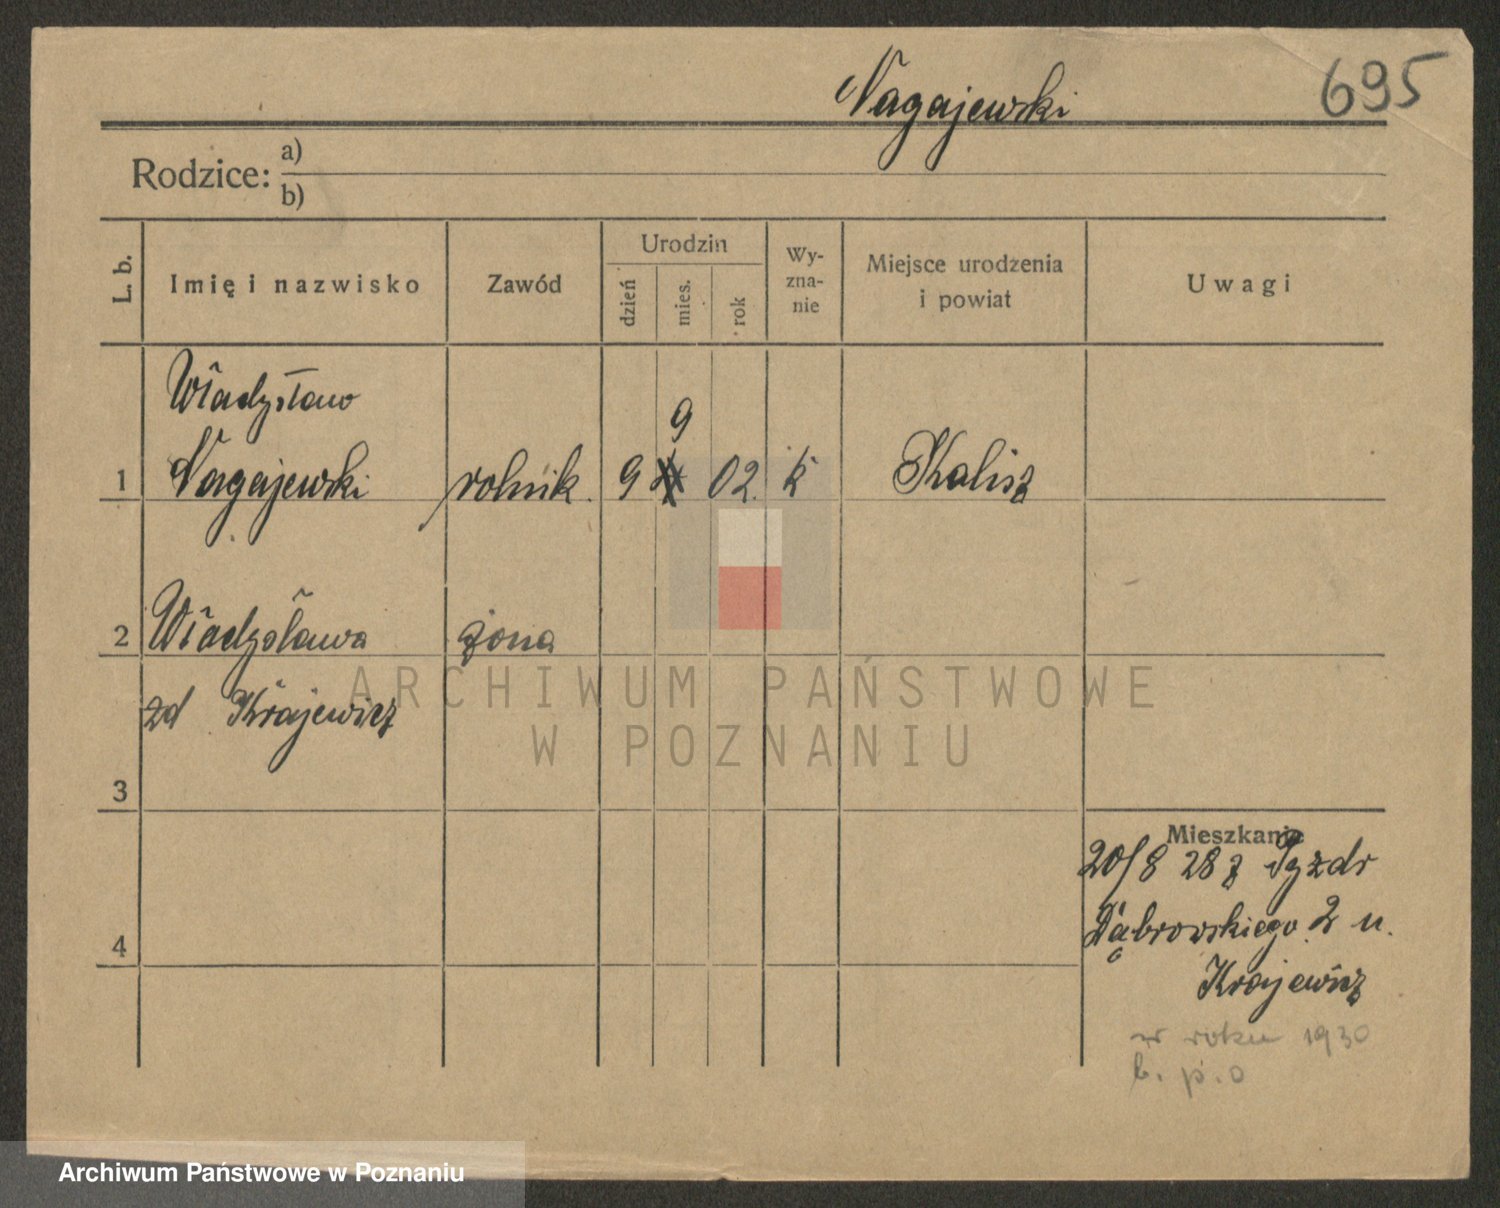 Nagajewski
695
Rodzice:
a)
b)
L. b.
Imię i nazwisko
Zawód
Urodzin
dzień
mies.
rok
Wy-
zna-
nie
Miejsce urodzenia
i powiat
Uwagi
Władysław
9
1 Nagajewski rolnik. 9 02. k Kalisz
2 Władysława żona
zd Krajewicz
3
4
Mieszkanie
20/8 28 z Pyzdr
Dąbrowskiego 2 u.
Krajewicz
w roku 1930
b. p. o
ARCHIWUM PAŃSTWOWE
W POZNANIU
Archiwum Państwowe w Poznaniu